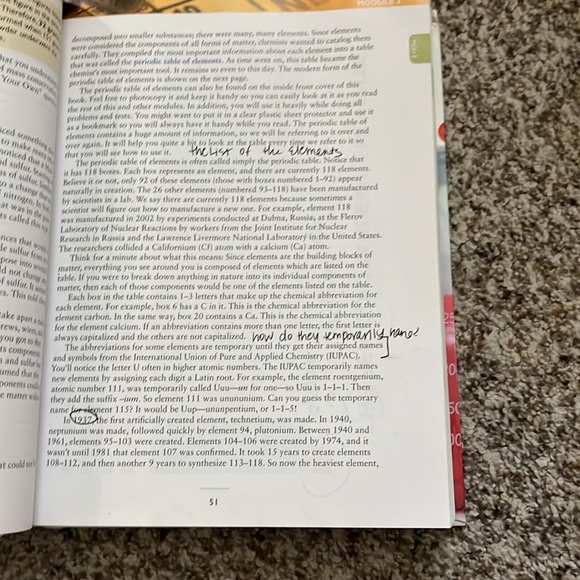 MODULE 2
decomposed into smaller substances; there were many, many elements. Since elements
were considered the components of all forms of matter, chemists wanted to catalog them
carefully. They compiled the most important information about each element into a table
that was called the periodic table of elements. As time went on, this table became the
chemist's most important tool. It remains so even to this day. The modern form of the
periodic table of elements is shown on the next page.
The periodic table of elements can also be found on the inside front cover of this
book. Feel free to photocopy it and keep it handy so you can easily look at it as you read
the rest of this and other modules. In addition, you will use it heavily while doing all
problems and tests. You might want to put it in a clear plastic sheet protector and use it
as a bookmark so you will always have it handy while you read. The periodic table of
elements contains a huge amount of information, so we will be referring to it over and
over again. It will help you quite a bit to look at the table every time we refer to it so
that you will see how to use it. the list of the elements
The periodic table of elements is often called simply the periodic table. Notice that
it has 118 boxes. Each box represents an element, and there are currently 118 elements.
Believe it or not, only 92 of these elements (those with boxes numbered 1–92) appear
naturally in creation. The 26 other elements (numbered 93–118) have been manufactured
by scientists in a lab. We say there are currently 118 elements because sometimes a
scientist will figure out how to manufacture a new one. For example, element 118
was manufactured in 2002 by experiments conducted at Dubna, Russia, at the Flerov
Laboratory of Nuclear Reactions by workers from the Joint Institute for Nuclear
Research in Russia and the Lawrence Livermore National Laboratory in the United States.
The researchers collided a Californium (Cf) atom with a calcium (Ca) atom.
Think for a minute about what this means: Since elements are the building blocks of
matter, everything you see around you is composed of elements which are listed on the
table. If you were to break down anything in nature into its individual components of
matter, then each of those components would be one of the elements listed on the table.
Each box in the table contains 1–3 letters that make up the chemical abbreviation for
each element. For example, box 6 has a C in it. This is the chemical abbreviation for the
element carbon. In the same way, box 20 contains a Ca. This is the chemical abbreviation
for the element calcium. If an abbreviation contains more than one letter, the first letter is
always capitalized and the others are not capitalized. how do they temporarily name?
The abbreviations for some elements are temporary until they get their assigned names
and symbols from the International Union of Pure and Applied Chemistry (IUPAC).
You'll notice the letter U often in higher atomic numbers. The IUPAC temporarily names
new elements by assigning each digit a Latin root. For example, the element roentgenium,
atomic number 111, was temporarily called Uuu—un for one—so Uuu is 1–1–1. Then
they add the suffix –ium. So element 111 was unununium. Can you guess the temporary
name for element 115? It would be Uup—ununpentium, or 1–1–5!
In 1937 the first artificially created element, technetium, was made. In 1940,
neptunium was made, followed quickly by element 94, plutonium. Between 1940 and
1961, elements 95–103 were created. Elements 104–106 were created by 1974, and it
wasn't until 1981 that element 107 was confirmed. It took 15 years to create elements
108–112, and then another 9 years to synthesize 113–118. So now the heaviest element,
51